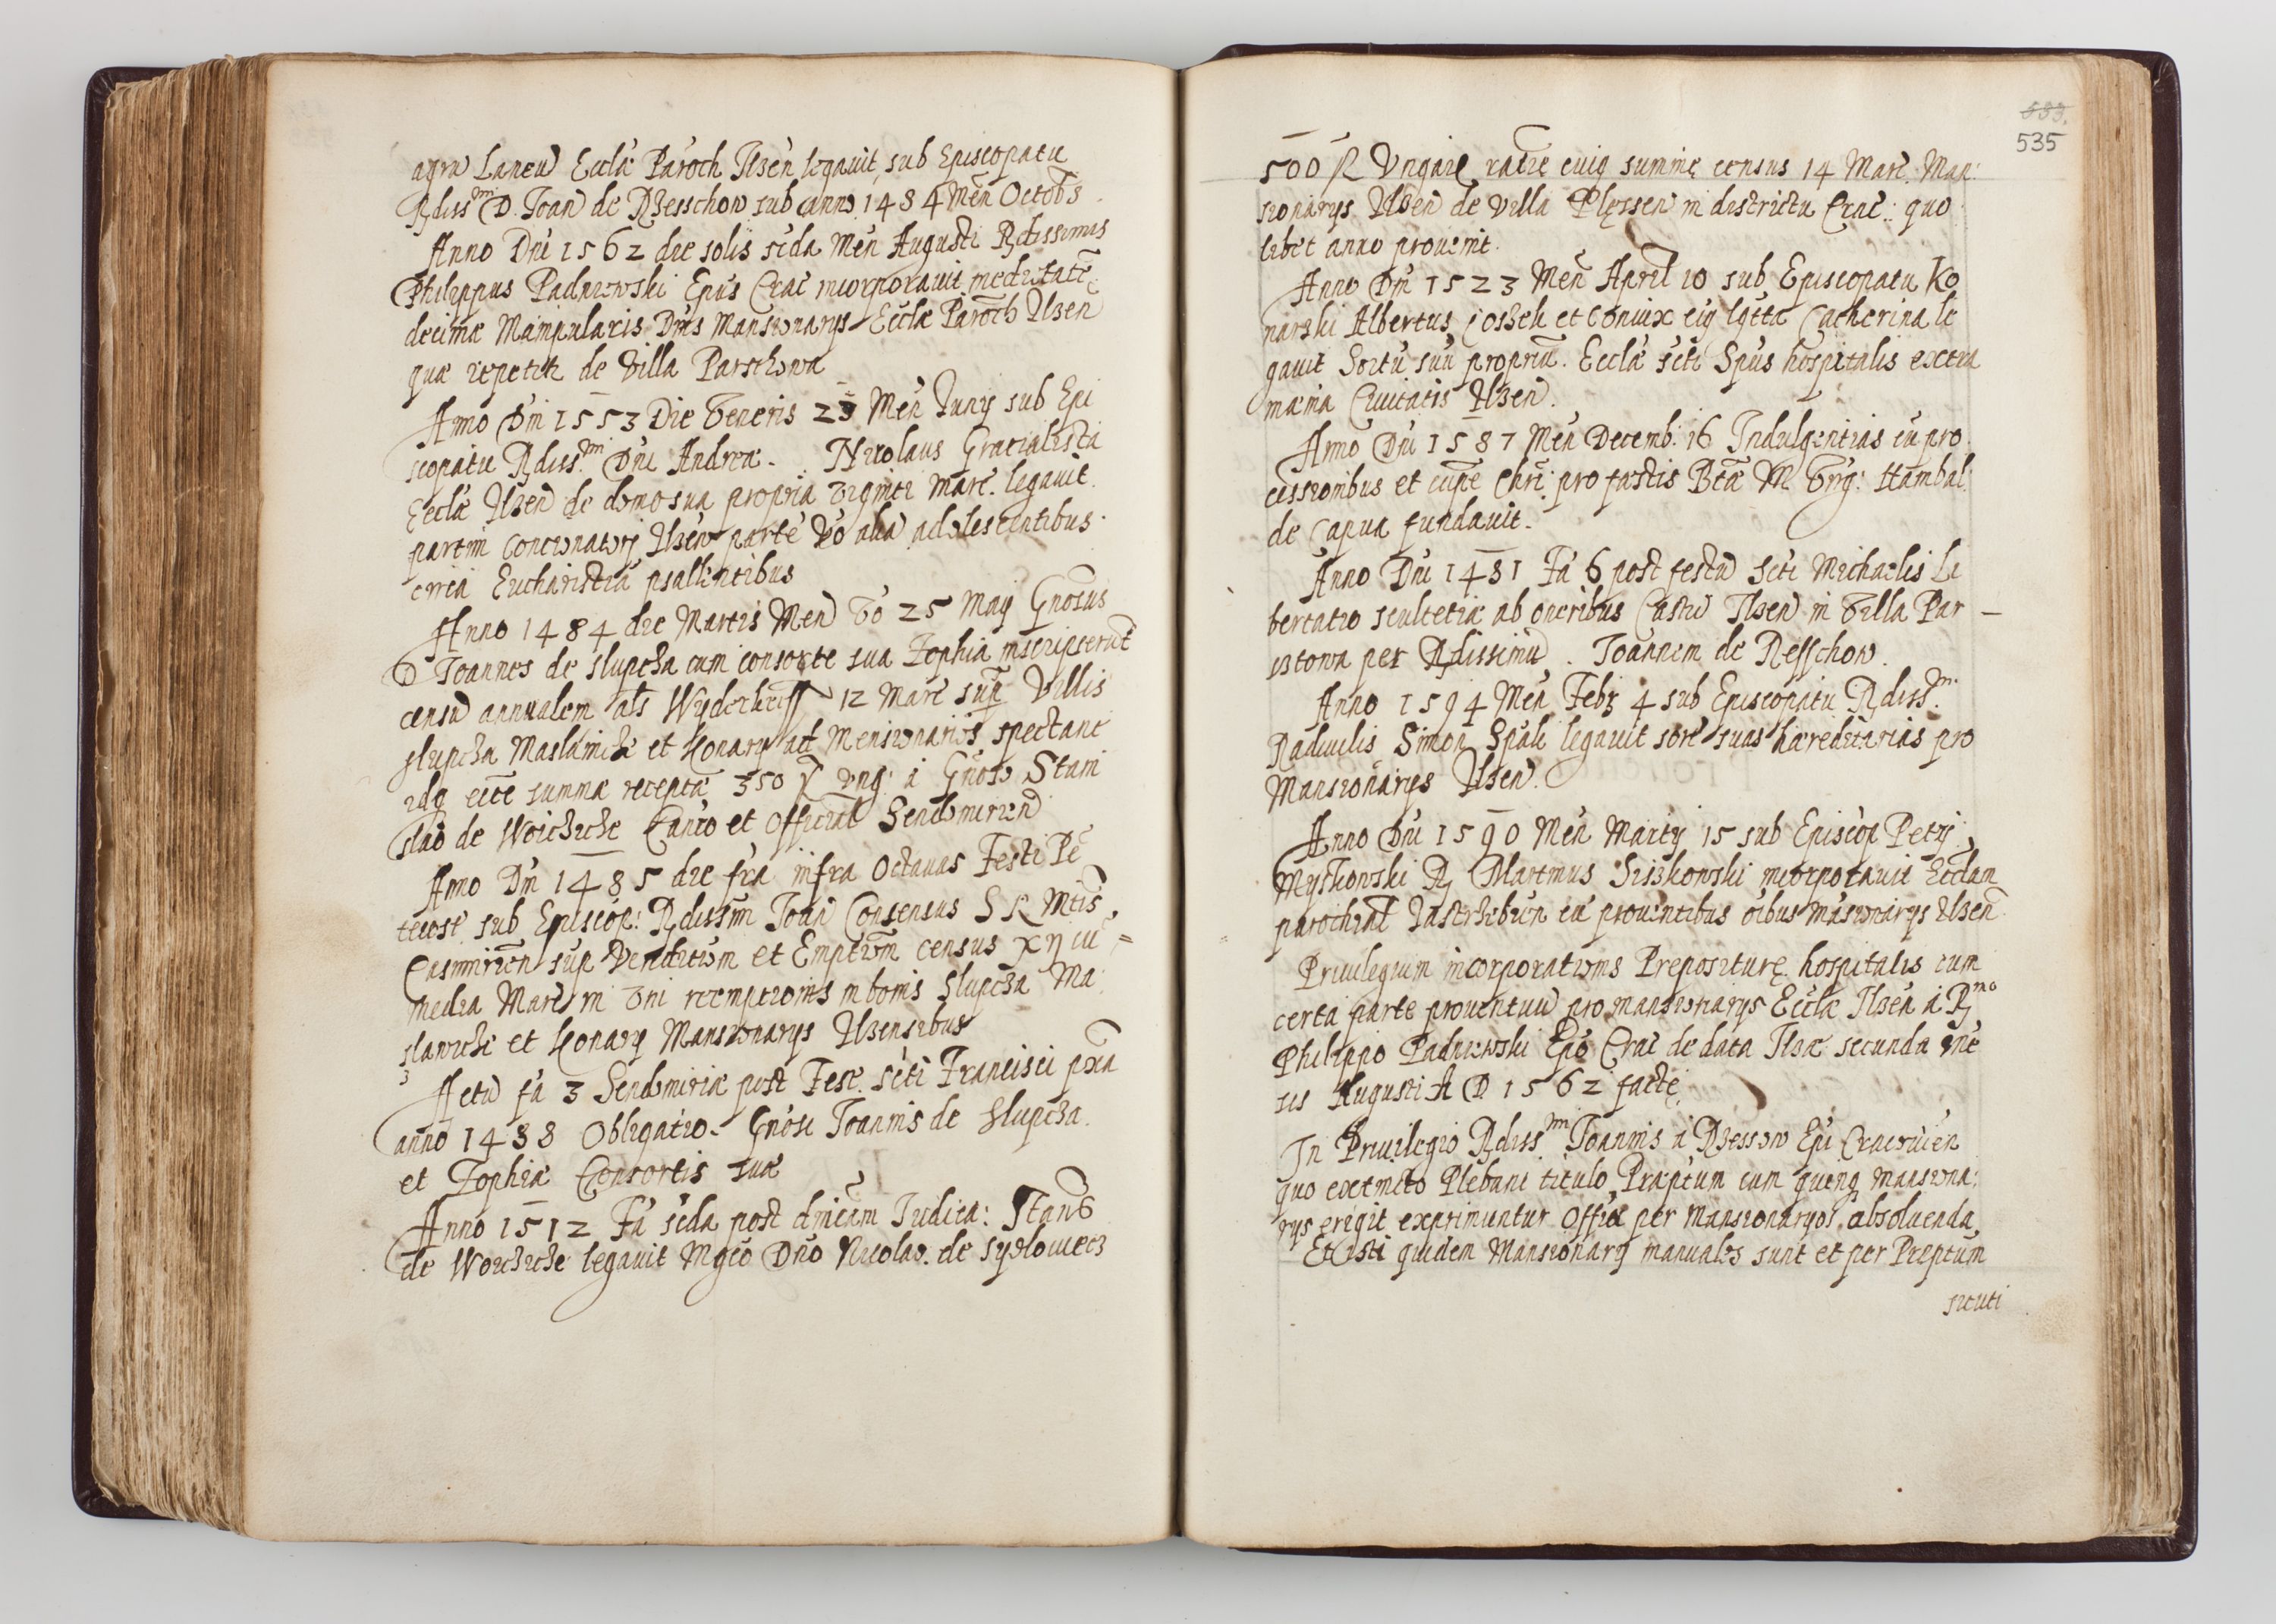 agru Laneu Eccla Paroch Ilzen legauit, sub Episcopatu
Rdissmi D. Joan de Rzesschow sub anno 1484 Men Octobs
Anno Dni 1562 die solis scda Men Augusti Rdissimus
Philippus Padniewski Epus Crac incorporauit medietate
decimæ Manipularis Dnis Mansionarys Ecclæ Paroch Ilzen
quæ repetit de Villa Parschowa
Anno Dni 1553 Die Veneris 23 Men Juny sub Epi
scopatu Rdiss.mi Dni Andreæ. Nicolaus Gracialista
Eccla Ilzen de domo sua propria viginti Marc. legauit
partim concionatory Ilzen parte vo alia adolescentibus
circa Eucharistia psallentibus
Anno 1484 die Martis Men vo 25 May Gnosus
D Joannes de slupcza cum consorte sua Zophia inscripserut
censu annualem als Wyderkeff 12 Marc sup Villis
slupcza Maslawicze et Konary ad Mensionarios spectant
idq eite summæ recepta 350 ung: a Gnoso Stani
slao de Woiczicze Canco et Official Sendomirien
Anno Dni 1485 die fra infra Octauas Festi Pe
tecost sub Episcop: Rdissim Joan Consensus S R Mtis
Casimirien sup Venditiom et Emptiom census xij cu =
media Marc in vni reemptionis in bonis Slupcza Ma
slawicze et Konary Mansionarys Ilzensibus
Actu fa 3 Sendomiriæ post Fest. scti Francisci pxa
anno 1488 Obligatio Gnosi Joannis de slupcza
et Zophiæ Consortis suæ
Anno 1512 Fa scda post dnicam Judica: Stans
de Woiczicze legauit Mgco Dno Nicolao de Sydlowecz
533.
535
500 R Ungaric ratæ cuiq summe census 14 Marc. Man:
sionarys Ilzen de villa Plessen in districtu Crac: quo
libet anno prouenit.
Anno Dni 1523 Men April 10 sub Episcopatu Ko
narski Albertus Joszek et Coniux eiq lgtta Catherina le
gauit Sortu suu propriu. Eccla scti Spus hospitalis extra
mænia Ciuitatis Ilzen.
Anno Dni 1587 Men Decemb: 16 Indulgentias cu pro
cessionibus et cupe Chri: pro fastis Bta M. Vrg: Hambal:
de Capua fundauit.
Anno Dni 1481 Fa 6 post festu Scti Michaelis Li
bertatio scultetiæ ab oneribus Castri Ilzen in Villa Par
sztowa per Rdissimu. Joannem de Resschow.
Anno 1594 Men Febr 4 sub Episcopatu Rdiss.mi
Radiuilis Simon Spali legauit sort suas hæreditarias pro
Mansionarys Ilzen.
Anno Dni 1590 Men Marty 15 sub Episcop Petry
Myskowski R Martinus Siszkowski incorporauit Ecclam
parochial Jastrzebien cu prouentibus oibus Masionarys Ilzen
Priuilegium incorporationis Prepositurę hospitalis cum
certa parte prouentuu pro mansionarys Ecclæ Ilzen a Rmo
Philippo Padniewski Epo Crac de data Ilzæ secunda me
sis Augusti A D 1562 factę.
In Priuilegio Rdissmi Joannis a Rzessow Epi Cracouien
quo extincto Plebani titulo, Præptum cum quinq mansiona:
rys erigit exprimuntur Offia per Mansionaryos absoluenda
Et isti quidem Mansionary manuales sunt et per Preptum
sicuti